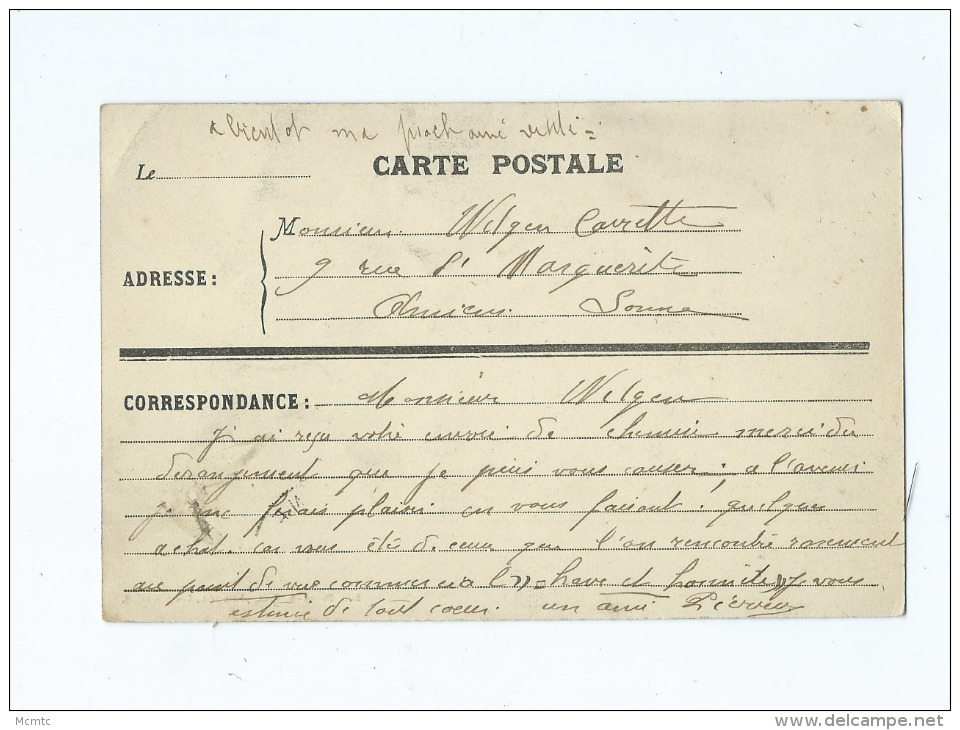 a bientot ma prochaine visite
CARTE POSTALE
Le
Monsieur Welgen Carrette
ADRESSE : 9 rue St Marguerite
Amiens. Somme
CORRESPONDANCE : Monsieur Welgen
J ai reçu votre envoie de chemise merci du
derangement que je puis vous causer ; a l'avenir
je me ferais plaisir en vous faisant quelque
achat. car vous de ceux que l'on rencontre rarement
au point de vue commercial et honnête, je vous
estime de tout coeur un ami
Mcmtc
delcampe.net